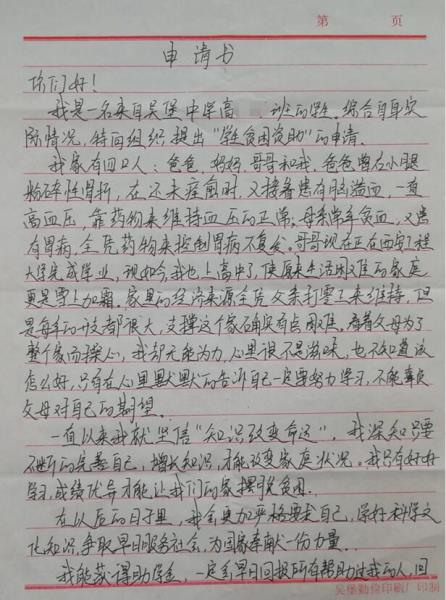 第 页
申请书
你们好！
我是一名来自吴堡中学高 班的学生.综合自身实
际情况，特向组织提出“学生贫困资助”的申请.
我家有四口人：爸爸，妈妈，哥哥和我.爸爸曾右小腿
粉碎性骨折，在还未痊愈时，又接着患有脑溢血，一直
高血压，靠药物来维持血压的正常；母亲常年贫血，又患
有胃病，全凭药物来控制胃病不复发.哥哥现在正在西安工程
大学完成学业，现如今我也上高中了，使原来生活困难的家庭
更是雪上加霜.家里的经济来源全凭父亲打零工来维持，但
是每年的花费都很大，支撑这个家确实有点困难.看着父母为了
整个家而操心，我却无能为力，心里很不是滋味，也不知道该
怎么好，只有在心里默默的告诉自己一定要努力学习，不能辜负
父母对自己的期望.
一直以来我就坚信“知识改变命运”.我深知只要
不断的完善自己，增长知识，才能改变家庭状况.我只有好好
学习，成绩优异才能让我们的家摆脱贫困.
在以后的日子里，我会更加严格要求自己，学好科学文
化知识，争取早日服务社会，为国家奉献一份力量.
我能获得助学金，一定会早日回报所有帮助过我的人，回
吴堡勤俭印刷厂印制